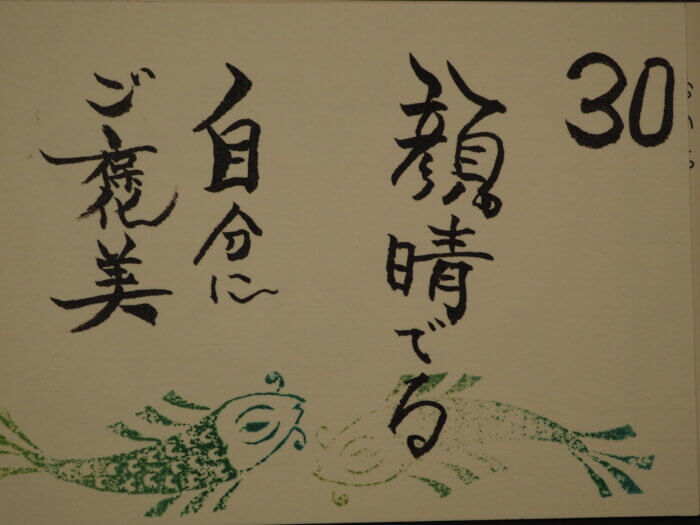 30
顔晴でる
自分に
ご褒美